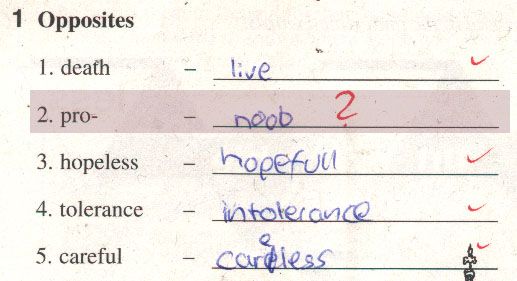 1 Opposites
1. death – live
2. pro- – noob ?
3. hopeless – hopefull
4. tolerance – intolerance
5. careful – careless